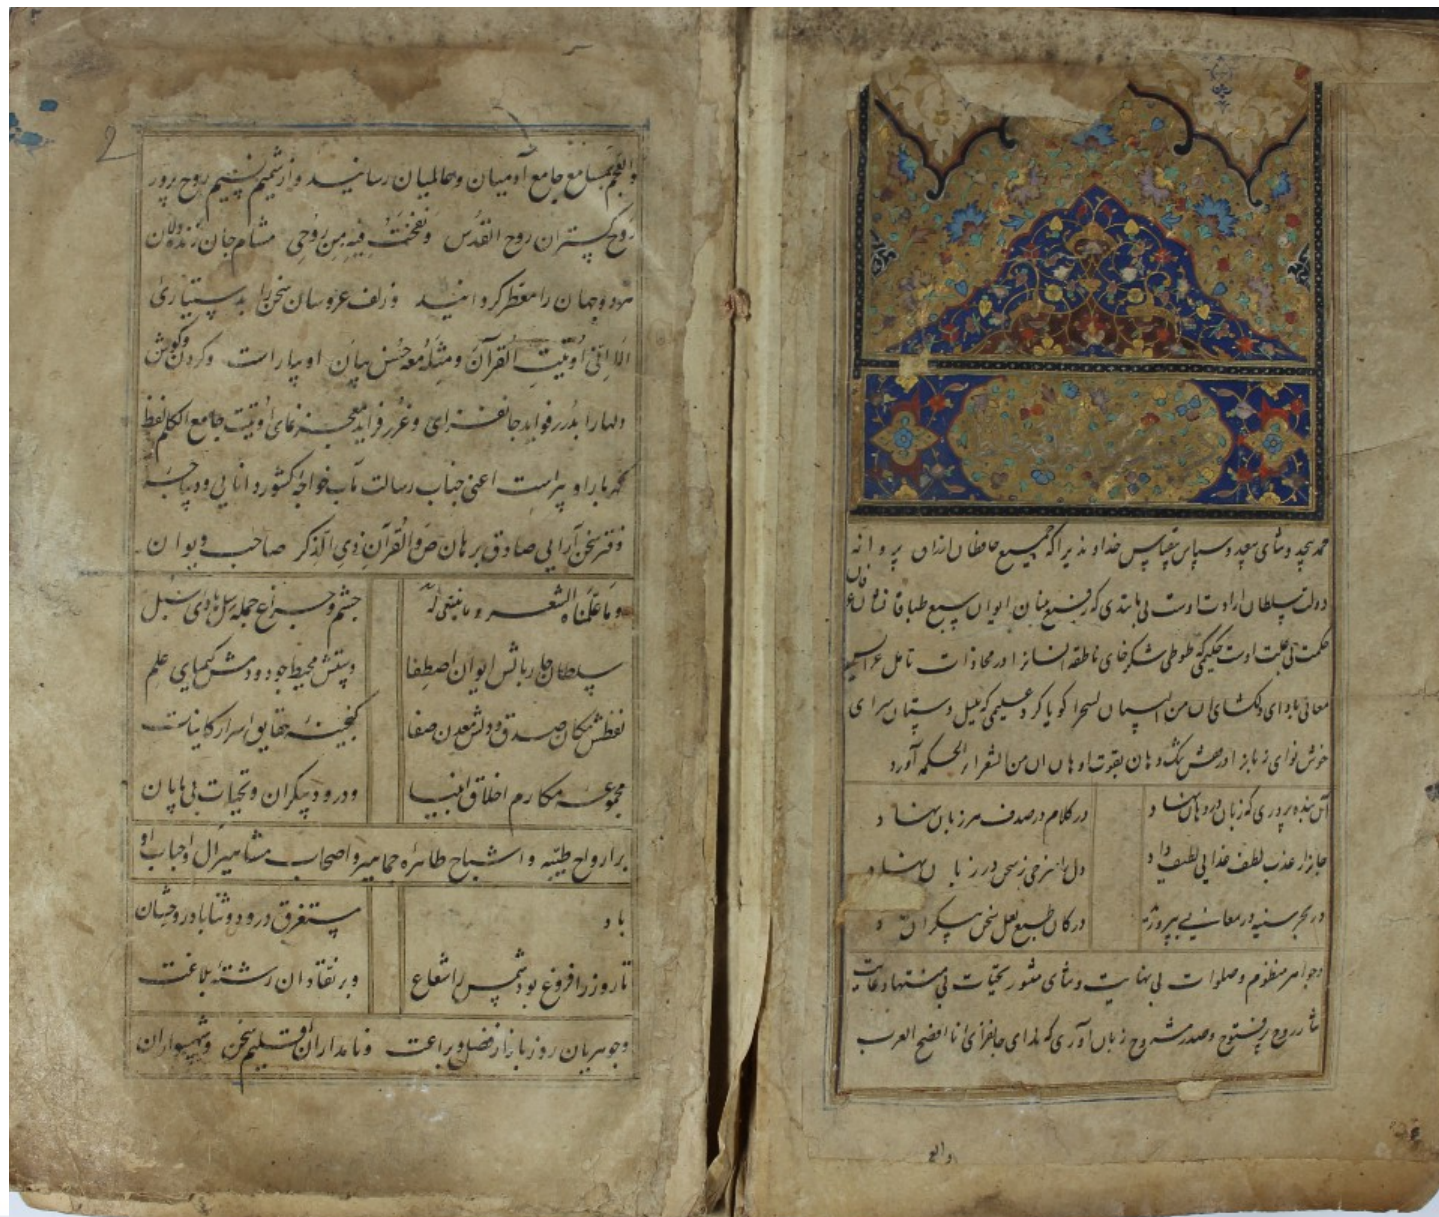 حمد بیحد و ثنای بیعد و سپاس بیقیاس خداوندیرا که جمیع حافظان ارزان پروانه
دولت سلطان ارادت اوست بی مانندی که رفیع بنیان ایوان سبع طباقا
حکمت بی علت اوست حکیمی که طوطی شکرخای ناطقه انسانرا در محاذات تامل
معانی بادای دلکشای ان من البیان لسحرا کویا کرد علیمی که بلبل دستان سرای
خوش نوای زبانرا در قفس تنک دهان بقوت اوهان ان من الشعر الحکمه آورد
آن بنده پروری که زبان در دهان نهاد
در کلام در صدف هر زبان نهاد
جانرا ز عذب لطف غذایی لطیف داد
دل را ز سحر در زبان نهاد
در بحر سینه در معانی بپرورید
در کان طبع لعل سخن بیکران نهاد
وجواهر منظوم وصلوات بی نهایت وثنای منثور تحیات بی منتها وغایت
نثار روح پرفتوح وصدر مشروح زبان آوری که ندای جانفزای انا افصح العرب
والع
2
والعجم بمسامع جامع آدمیان وعالمیان رسانید واز شمیم نسیم روح پرور
روح کستران روح القدس ونفخت فیه من روحی مشام جان زنده دلان
هر دو جهان را معطر کردانید وزلف عروسان سخن را بدستیاری
الا انی اوتیت القرآن ومثله معه حسن بیان او بیاراست وکردن وکوش
دلها را بدرر فواید جانفزای وغرر فراید معجز نمای اوتیت جامع الکلم لفظ
کهربار او پیراست اعنی جناب رسالت مآب خواجه کشور دانایی ودیباچه
دفتر سخن آرایی صادق برهان ص والقرآن ذی الذکر صاحب دیوان
وما علمناه الشعر وما ینبغی له
چشم وچراغ جمله رسل هادی سبل
سلطان چاربالش ایوان اصطفا
دستش محیط جود ودمش کیمیای علم
لفظش مکان صدق ودلش معدن صفا
کنجینه حقایق اسرار کاینات
مجموعه مکارم اخلاق انبیا
ودرود بیکران وتحیات بی پایان
بر ارواح طیبه واشباح طاهره جماهیر واصحاب مشاهیر آل واحباب او
باد
مستغرق درود وثنا باد روحشان
تا روز را فروغ بود شمس را شعاع
وبر نقادان رشته بلاغت
وجوهریان روز بازار فضل وبراعت ونامداران اقلیم سخن وشهسواران